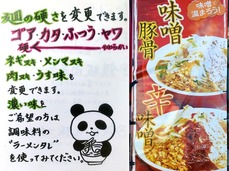 麺の硬さを変更できます。
ゴア・カタ・ふつう・ヤワ
硬く
ネギヌキ・メンマヌキ
肉ヌキ・うす味も
変更できます。
濃い味を
ご希望の方は
調味料の
"ラーメンタレ"
を使ってみてください。
味噌で
温まろう!
味噌
豚骨
辛
味噌